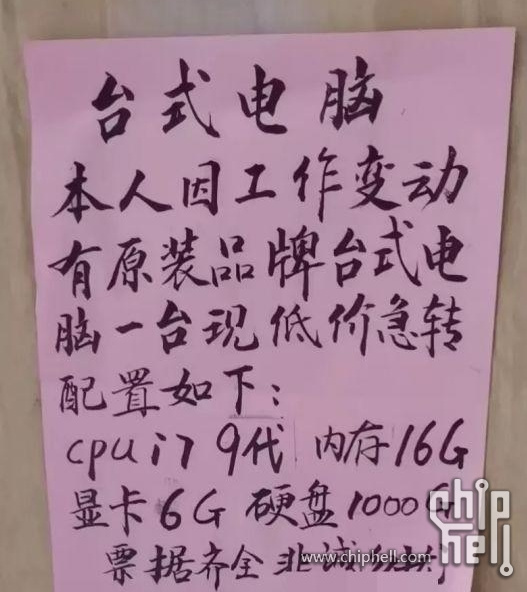 台式电脑
本人因工作变动
有原装品牌台式电
脑一台现低价急转
配置如下:
cpu i7 9代 内存16G
显卡6G 硬盘1000G
票据齐全 非诚勿扰
www.chiphell.com
chip
hell